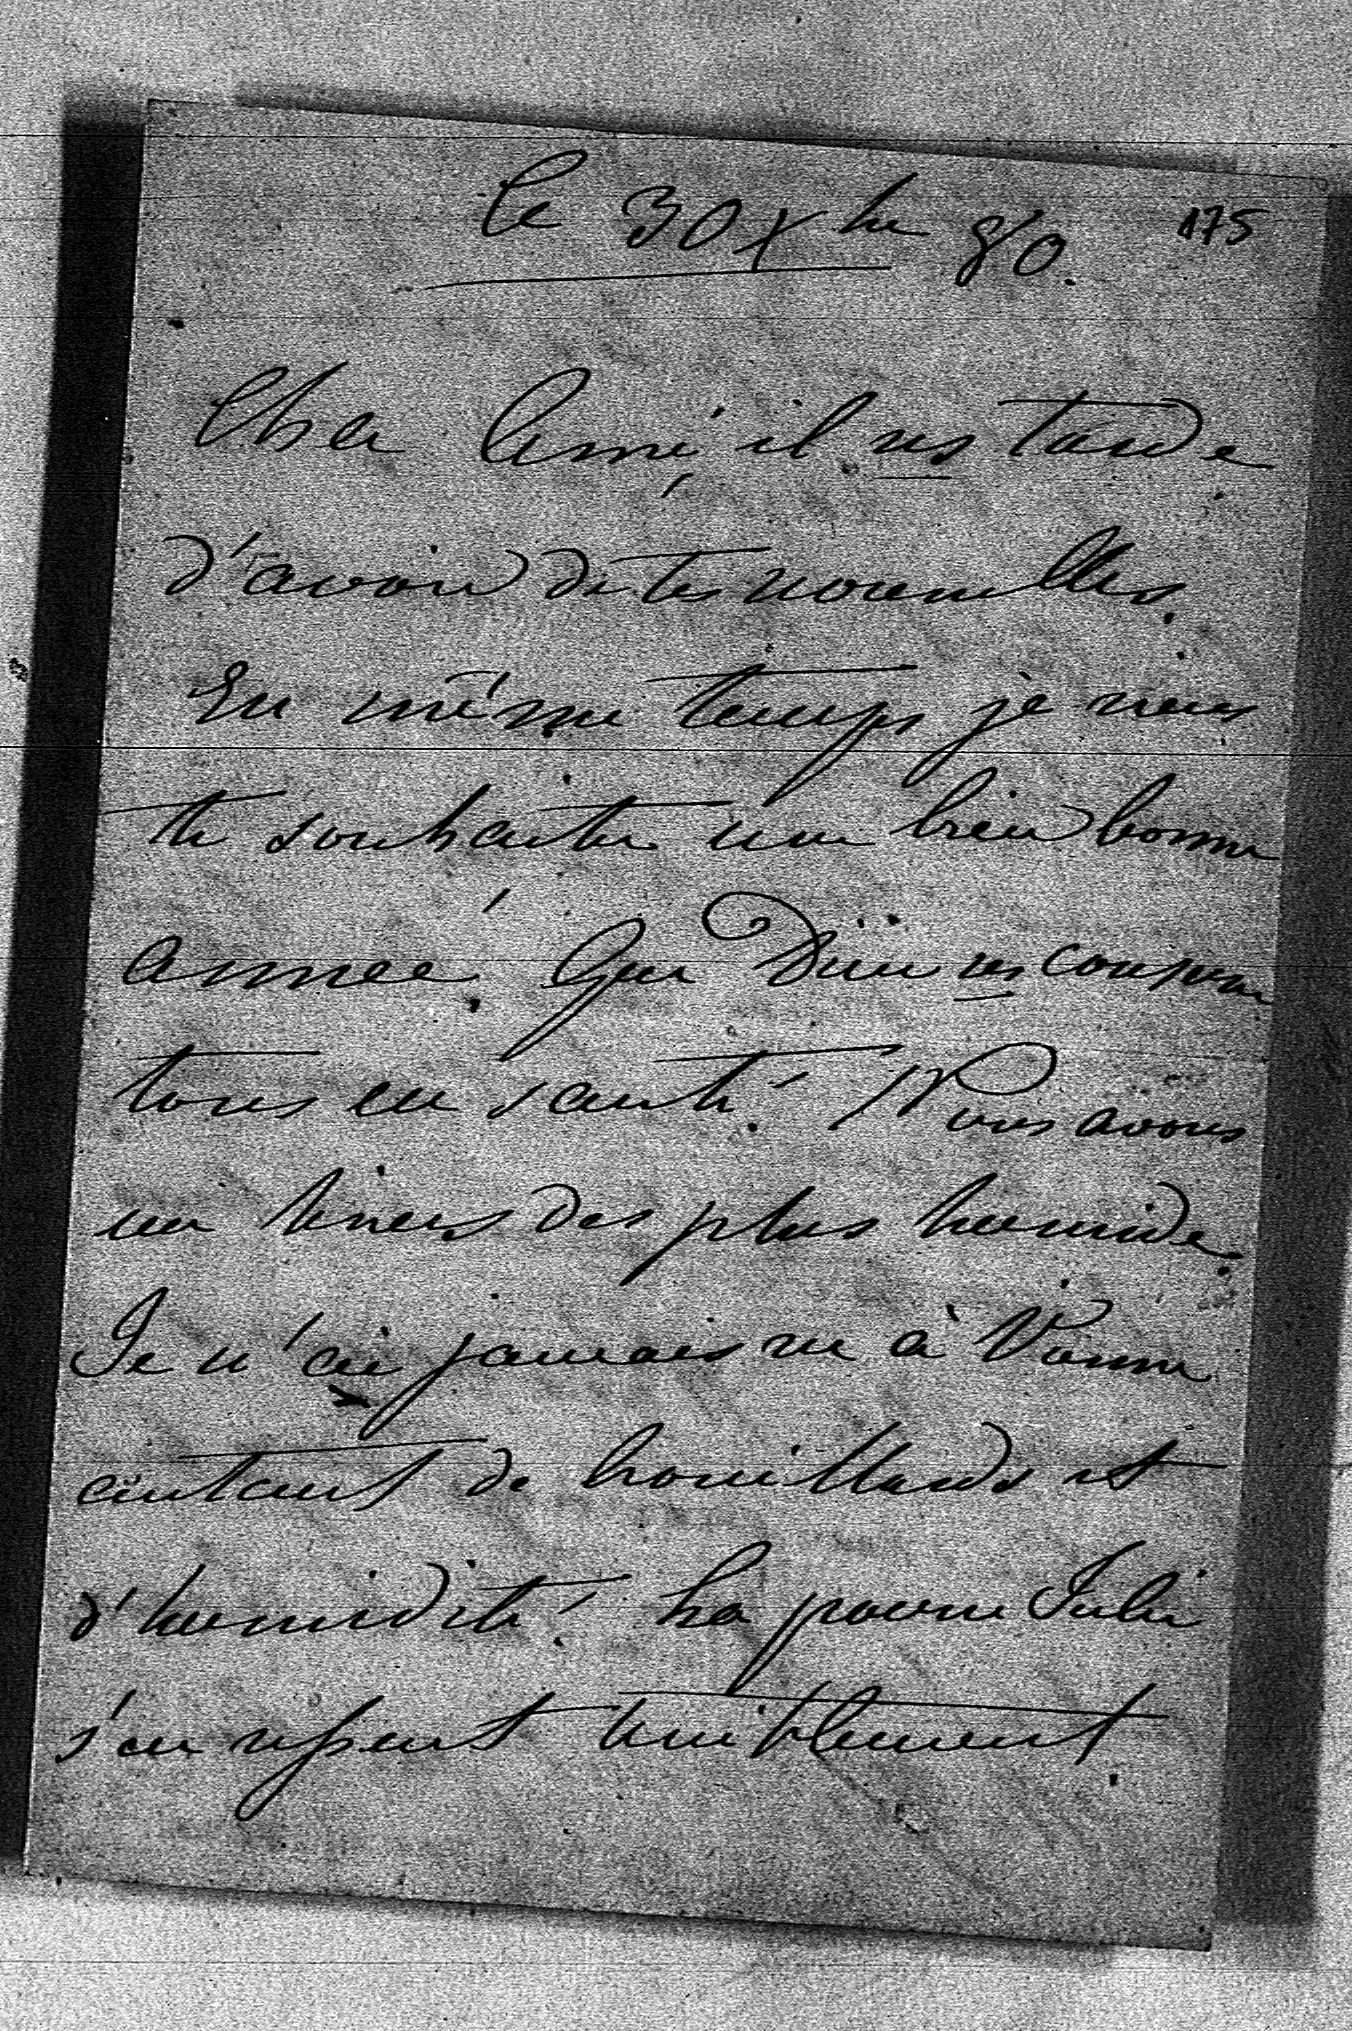 le 30 Xbre 80.
175
Cher Aimé, il ns tarde
d'avoir de tes nouvelles.
En même temps je viens
te souhaiter une bien bonne
année. Que Dieu ns conserve
tous en santé. Nous avons
un hivers des plus humide.
Je n'ai jamais vu à Vienne
autant de brouillards et
d'humidité. La pauvre Julie
s'en ressent terriblement.